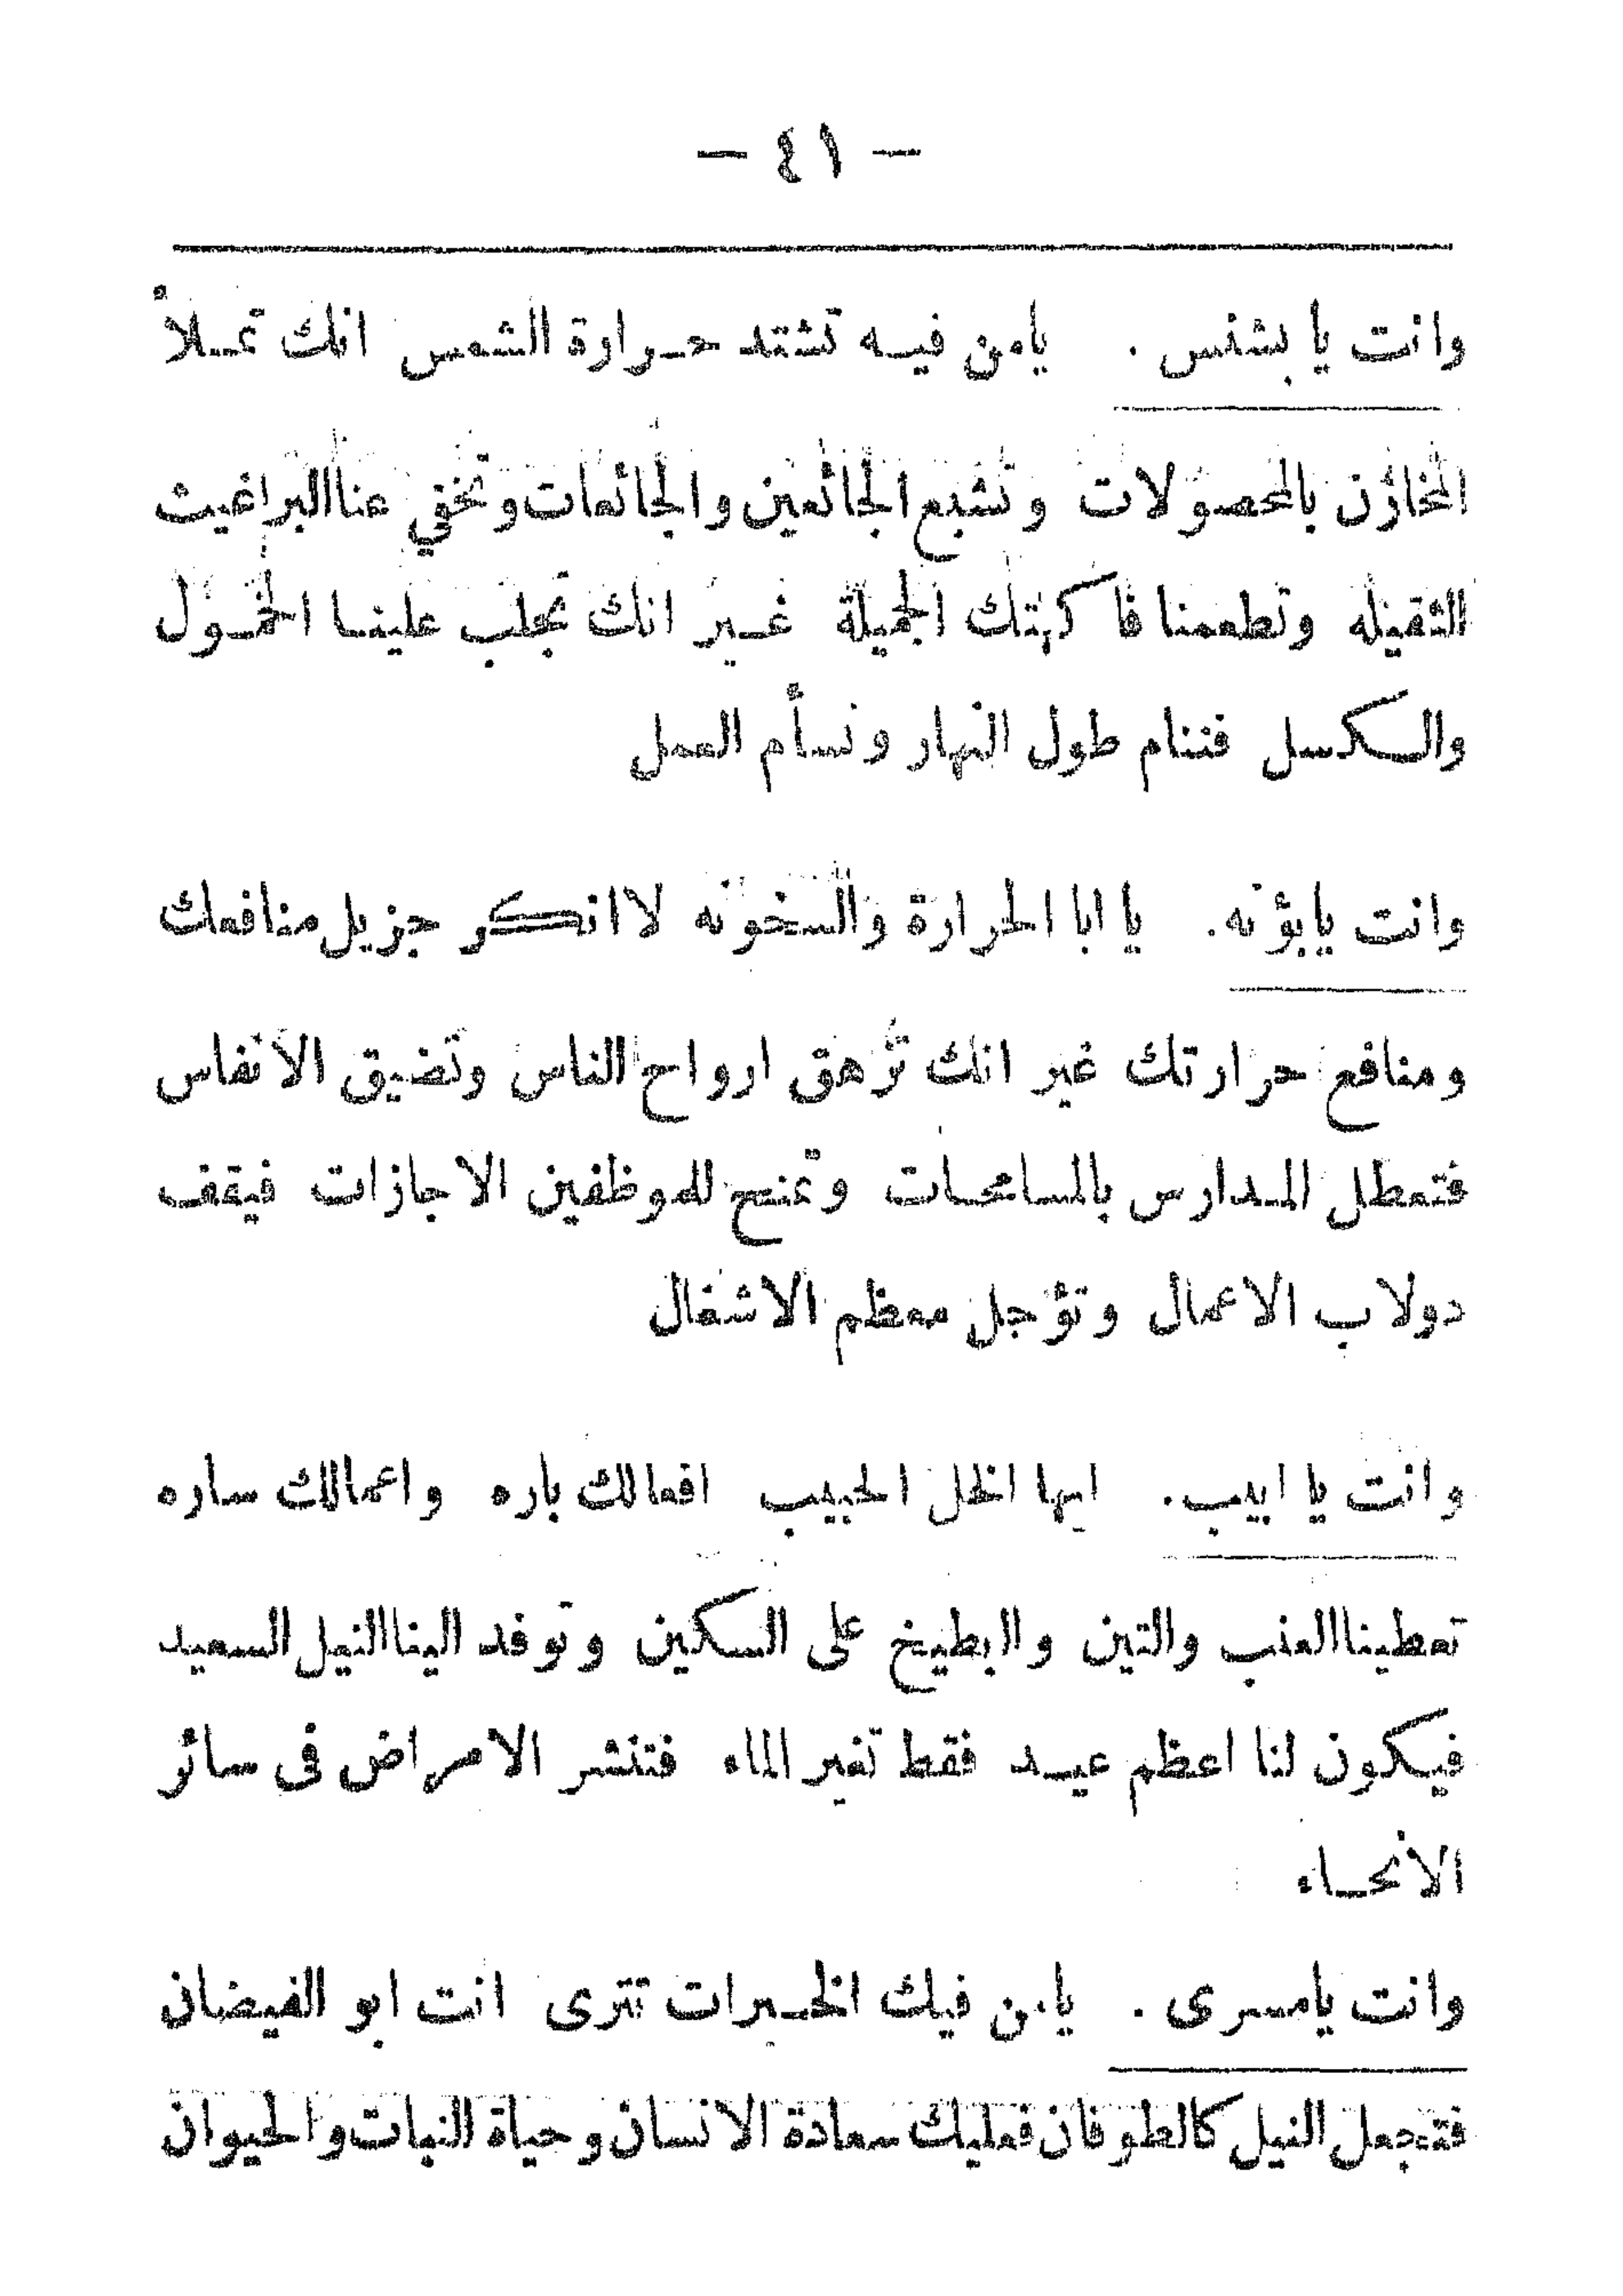 — ٤١ —
وانت يا بشنس . يامن فيه تشتد حرارة الشمس انك تملأ
المخازن بالمحصولات وتشبع الجائعين والجائعات وتخفي عنا البراغيث
الثقيله وتطعمنا فاكهتك الجميلة غير انك تجلب علينا الخمول
والكسل فننام طول النهار ونسأم العمل
وانت يابؤنه. يا ابا الحرارة والسخونه لا انكر جزيل منافعك
ومنافع حرارتك غير انك تزهق ارواح الناس وتضيق الانفاس
فتعطل المدارس بالمسامحات وتمنح للموظفين الاجازات فيقف
دولاب الاعمال وتؤجل معظم الاشغال
وانت يا ابيب. ايها الخل الحبيب افعالك باره واعمالك ساره
تعطينا العنب والتين والبطيخ على السكين وتوفد الينا النيل السعيد
فيكون لنا اعظم عيد فقط تغير الماء فتنشر الامراض فى سائر
الانحاء
وانت يامسرى . يامن فيك الخيرات تترى انت ابو الفيضان
فتجعل النيل كالطوفان فعليك سعادة الانسان وحياة النبات والحيوان